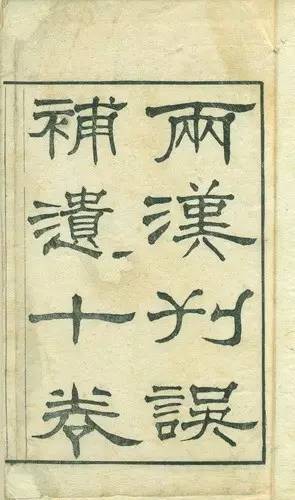 兩漢刋誤
補遺十卷